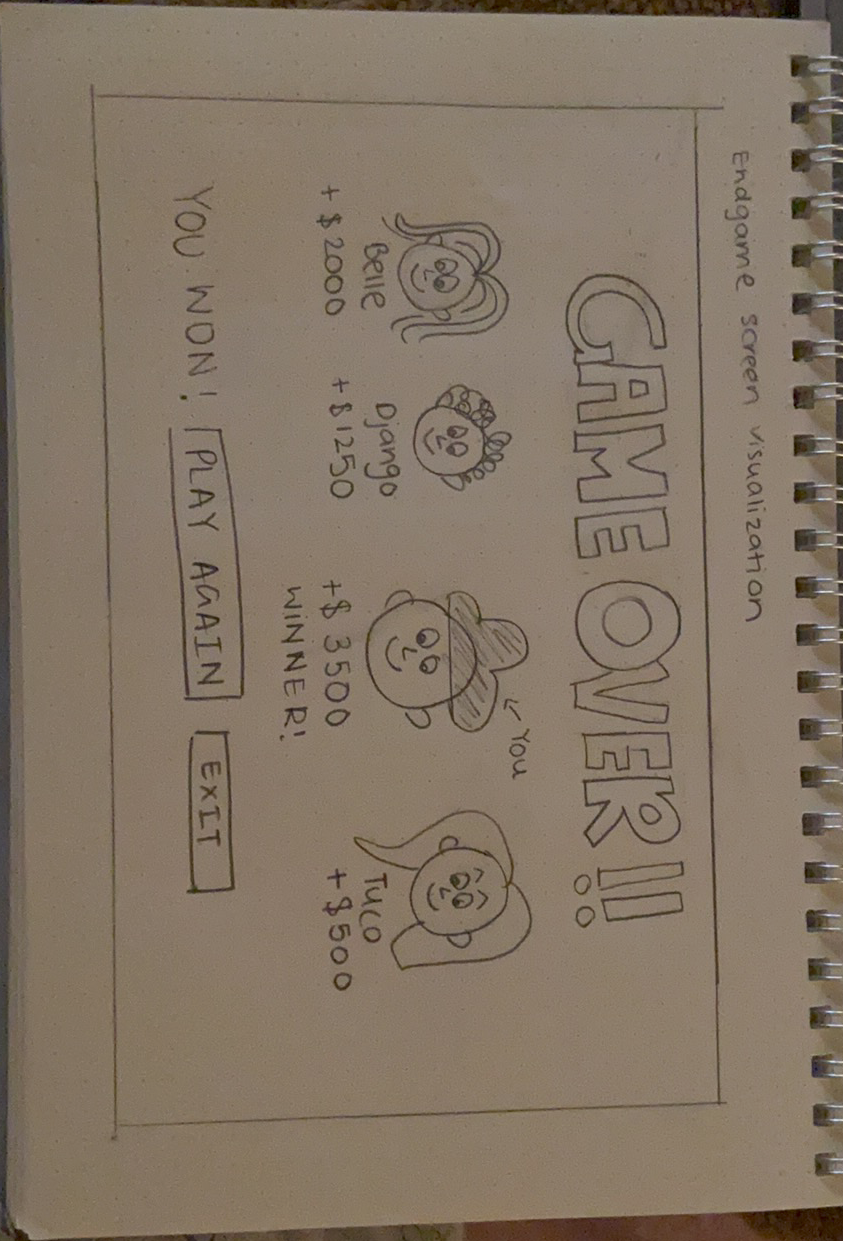 Endgame screen visualization
GAME OVER!!
← You
Belle
+ $2000
Django
+ $1250
+$ 3500
WINNER!
Tuco
+ $500
YOU WON!
PLAY AGAIN
EXIT